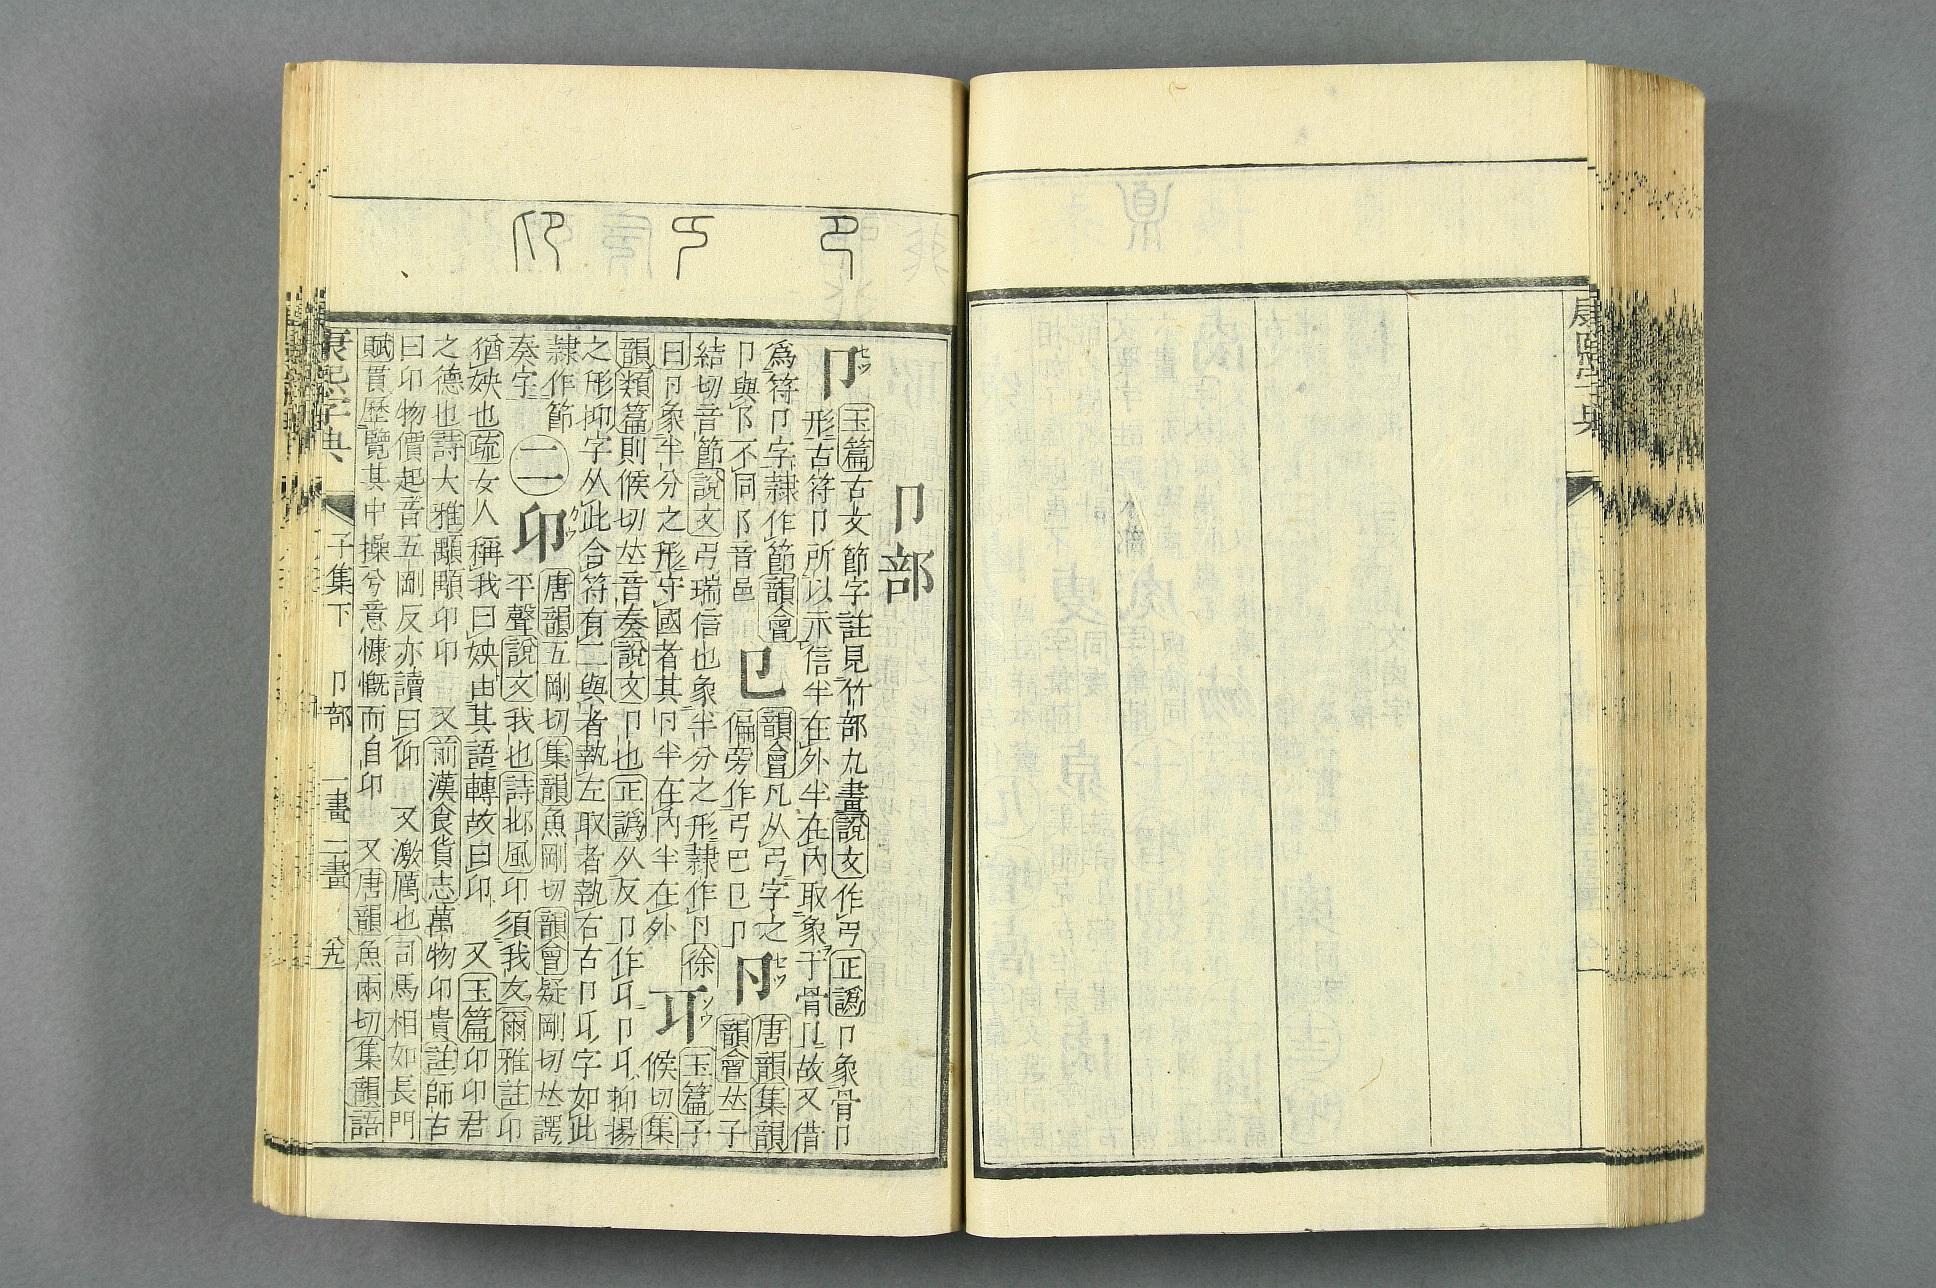 康熙字典
卩部
卩 セツ
玉篇古文節字註見竹部九畫說文作弓正譌卩象骨卩
形古符卩所以示信半在外半在內取象于骨卩故又借
爲符卩字隸作節韻會
卩與阝不同阝音邑
㔾
韻會凡从弓字之
偏旁作弓巴㔾卩
卪 セツ
唐韻集韻
韻會𠀤子
結切音節說文弓瑞信也象半分之形隸作卪徐
曰卪象半分之形守國者其卪半在內半在外
ソウ
玉篇子
候切集
韻類篇則候切𠀤音奏說文卩也正譌从反卩作𠨎卩𠨎抑揚
之形抑字从此合符有二與者執左取者執右古卩𠨎字如此
隸作節
奏字
二
卬 カウ
唐韻五剛切集韻魚剛切韻會疑剛切𠀤諤
平聲說文我也詩邶風卬須我友爾雅註卬
猶姎也疏女人稱我曰姎由其語轉故曰卬 又玉篇卬卬君
之德也詩大雅顒顒卬卬 又前漢食貨志萬物卬貴註師古
曰卬物價起音五剛反亦讀曰仰 又激厲也司馬相如長門
賦貫歷覽其中操兮意慷慨而自卬 又唐韻魚兩切集韻語
康熙字典 子集下 卩部 一畫 二畫 八九